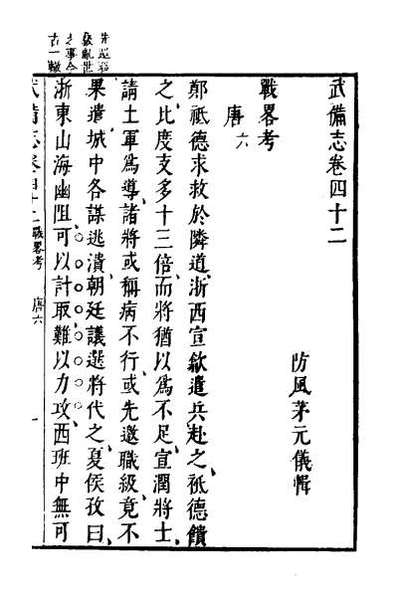 武備志卷四十二
防風茅元儀輯
戰畧考
唐六
鄭祗德求救於隣道浙西宣歙遣兵赴之祗德饋
之比度支多十三倍而將猶以為不足宣潤將士
請土軍為導諸將或稱病不行或先邀職級竟不
果遣城中各謀逃潰朝廷議選將代之夏侯孜曰
浙東山海幽阻可以計取難以力攻西班中無可
武備志卷四十二 戰畧考 唐六 一